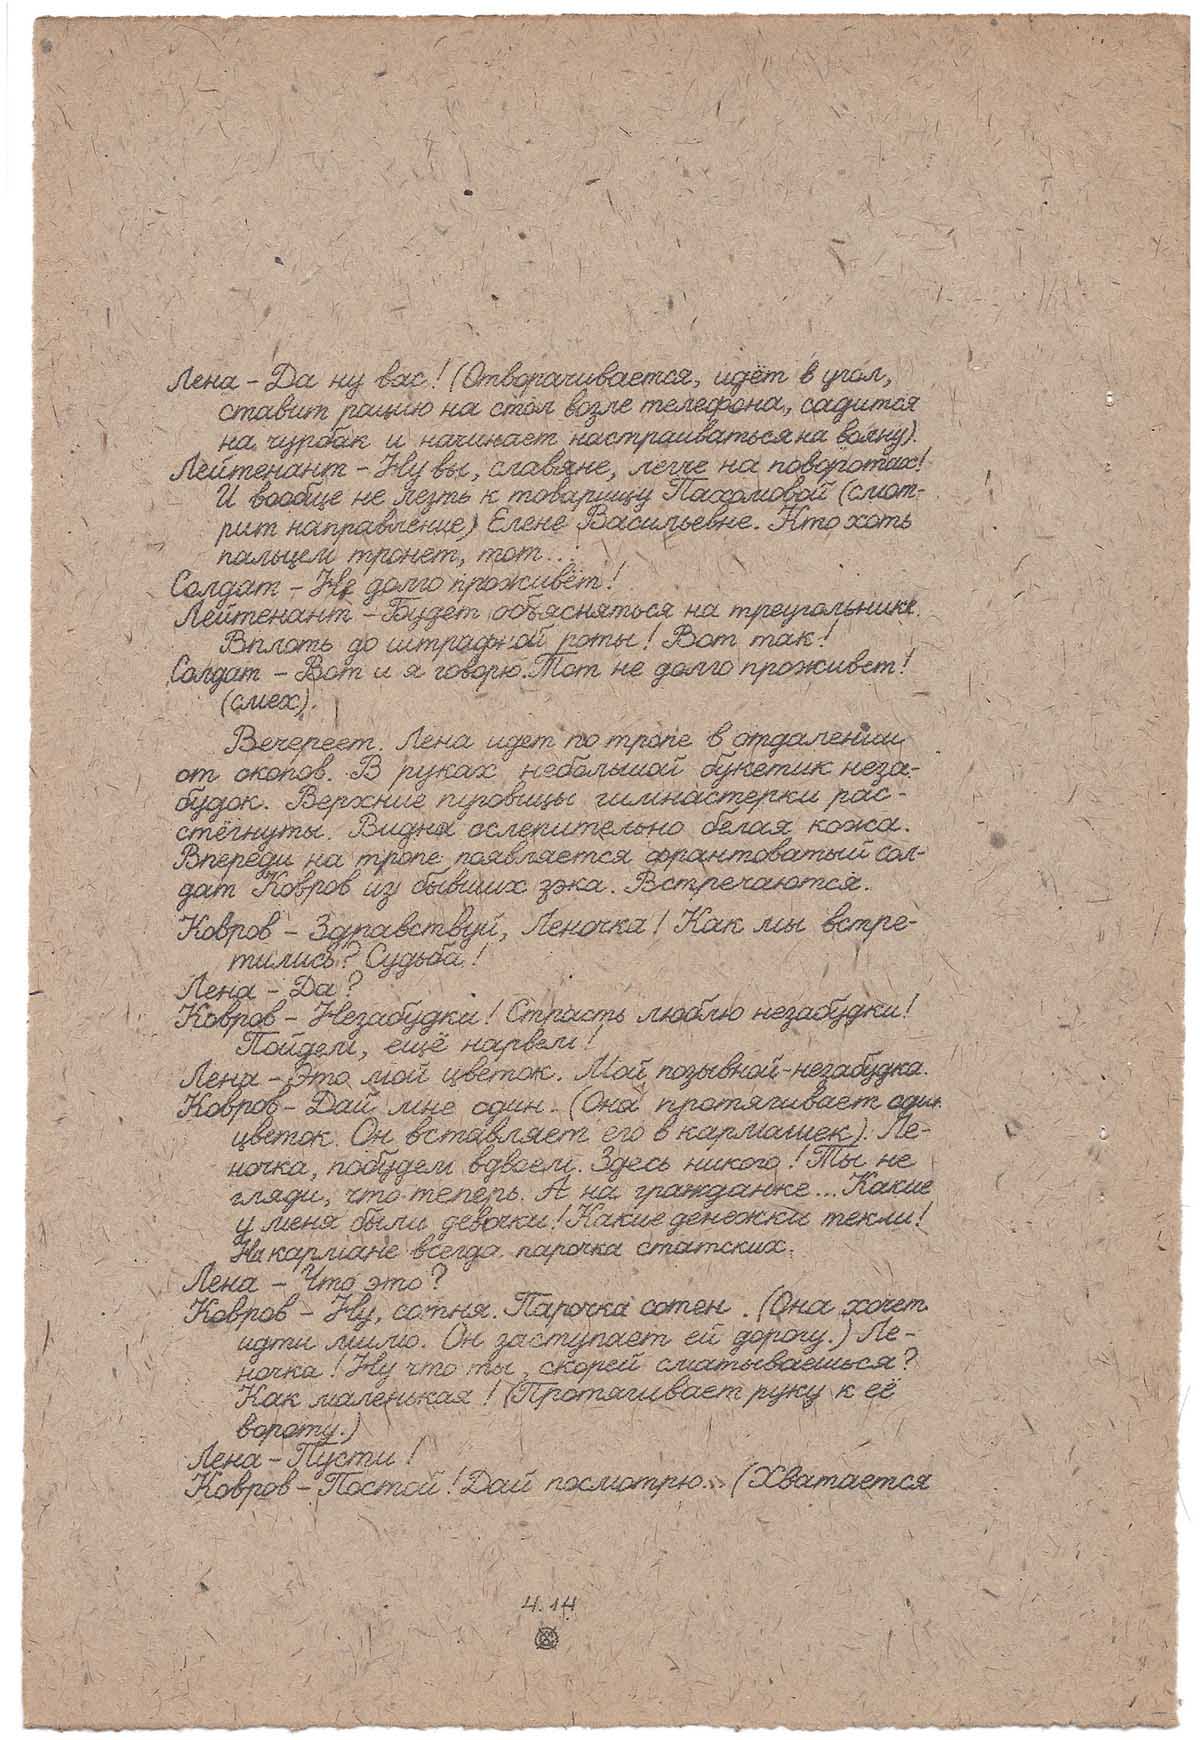 Лена – Да ну вас! (Отворачивается, идёт в угол,
ставит рацию на стол возле телефона, садится
на чурбак и начинает настраиваться на волну).
Лейтенант – Ну вы, славяне, легче на поворотах!
И вообще не лезть к товарищу Пахомовой (смот-
рит направление) Елене Васильевне. Кто хоть
пальцем тронет, тот...
Солдат – Не долго проживёт!
Лейтенант – Будет объясняться на треугольнике.
Вплоть до штрафной роты! Вот так!
Солдат – Вот и я говорю. Тот не долго проживет!
(смех).
Вечереет. Лена идет по тропе в отдалении
от окопов. В руках небольшой букетик неза-
будок. Верхние пуговицы гимнастерки рас-
стёгнуты. Видна ослепительно белая кожа.
Впереди на тропе появляется франтоватый сол-
дат Ковров из бывших зэка. Встречаются.
Ковров – Здравствуй, Леночка! Как мы встре-
тились? Судьба!
Лена – Да?
Ковров – Незабудки! Страсть люблю незабудки!
Пойдем, ещё нарвем!
Лена – Это мой цветок. Мой позывной – незабудка.
Ковров – Дай мне один. (Она протягивает один
цветок. Он вставляет его в кармашек). Ле-
ночка, побудем вдвоем. Здесь никого! Ты не
гляди, что теперь. А на гражданке... Какие
у меня были девочки! Какие денежки текли!
На кармане всегда парочка статских.
Лена – Что это?
Ковров – Ну, сотня. Парочка сотен. (Она хочет
идти мимо. Он заступает ей дорогу.) Ле-
ночка! Ну что ты, скорей сматываешься?
Как маленькая! (Протягивает руку к её
вороту.)
Лена – Пусти!
Ковров – Постой! Дай посмотрю... (Хватается
4.14